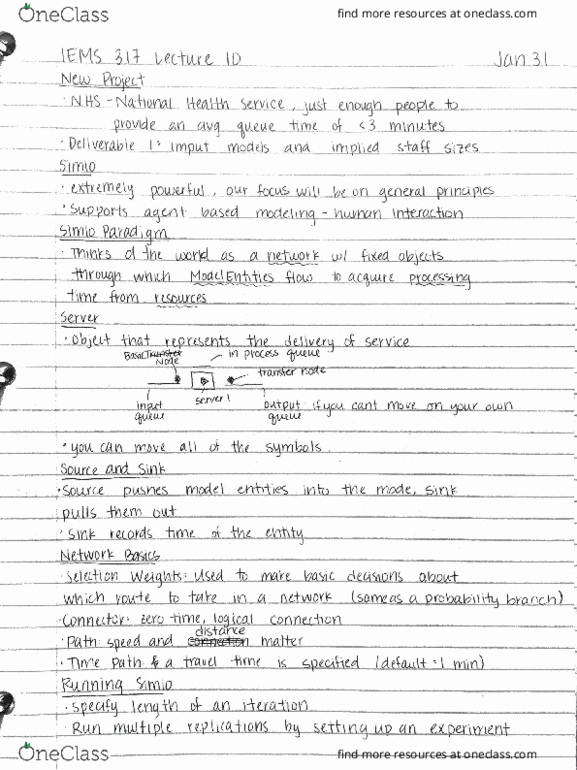 OneClass
find more resources at oneclass.com
IEMS 317 Lecture 10
Jan 31
New Project
· NHS - National Health Service, just enough people to
provide an avg queue time of <3 minutes
· Deliverable 1: imput models and implied staff sizes
Simio
· extremely powerful, our focus will be on general principles
· Supports agent based modeling - human interaction
Simio Paradigm
· Thinks of the world as a network w/ fixed objects
through which ModelEntities flow to acquire processing
time from resources
Server
· Object that represents the delivery of service
Basic Transfer Node
in process queue
transfer node
input queue
server 1
output queue if you cant move on your own
· you can move all of the symbols.
Source and Sink
· Source pushes model entities into the mode, sink
pulls them out
· Sink records time of the entity
Network Basics
· Selection Weights: Used to make basic decisions about
which route to take in a network (same as a probability branch)
· Connector: zero time, logical connection
· Path: speed and distance matter
· Time Path: a travel time is specified (default = 1 min)
Running Simio
· Specify length of an iteration
· Run multiple replications by setting up an experiment
OneClass
find more resources at oneclass.com